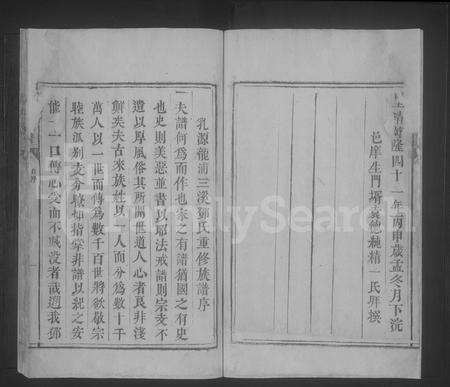 皇清乾隆四十一年丙申歲孟冬月下浣
邑庠生門壻黃 純精一氏拜撰
乳源龍浦三溪鄧氏重修族譜序
夫譜何為而作也家之有譜猶國之有史
也史則美惡並書以昭法戒譜則宗支不
遺以厚風俗其所關世道人心者良非淺
鮮矣夫古來族姓以一人而分為數十千
萬人以一世而傳為數千百世將欲敬宗
睦族派別支分瞭如指掌非譜以紀之安
能一口傳心受而不 沒者哉迺我鄧
自序
FamilySearch